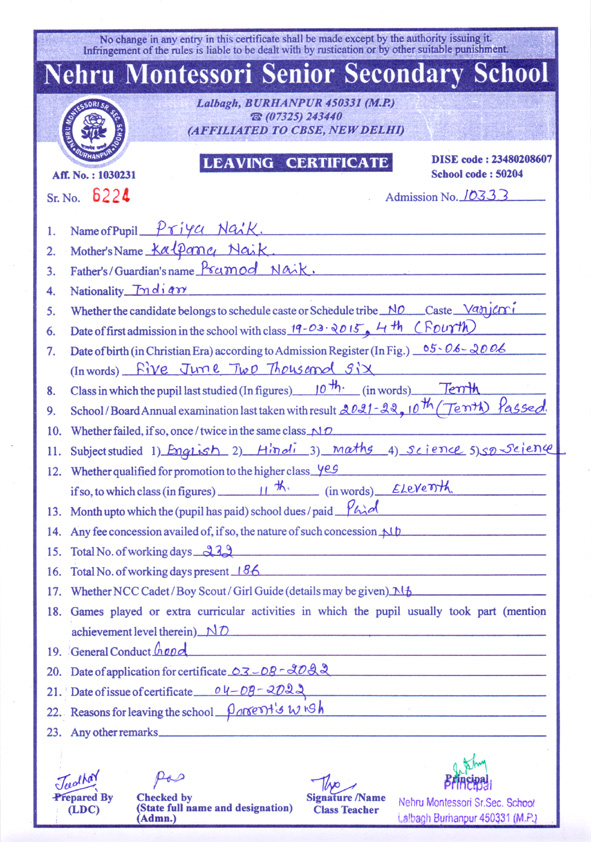 No change in any entry in this certificate shall be made except by the authority issuing it.
Infringement of the rules is liable to be dealt with by rustication or by other suitable punishment.
Nehru Montessori Senior Secondary School
NEHRU MONTESSORI SR. SEC. SCHOOL
BURHANPUR
Lalbagh, BURHANPUR 450331 (M.P.)
☎ (07325) 243440
(AFFILIATED TO CBSE, NEW DELHI)
Aff. No. : 1030231
LEAVING CERTIFICATE
DISE code : 23480208607
School code : 50204
Sr. No. 6224
Admission No. 10333
1. Name of Pupil Priya Naik.
2. Mother's Name Kalpana Naik.
3. Father's / Guardian's name Pramod Naik.
4. Nationality Indian
5. Whether the candidate belongs to schedule caste or Schedule tribe NO Caste Vanjari
6. Date of first admission in the school with class 19-03-2015, 4th (Fourth)
7. Date of birth (in Christian Era) according to Admission Register (In Fig.) 05-06-2006
(In words) Five June Two Thousand Six
8. Class in which the pupil last studied (In figures) 10th. (in words) Tenth
9. School / Board Annual examination last taken with result 2021-22, 10th (Tenth) Passed.
10. Whether failed, if so, once / twice in the same class NO
11. Subject studied 1) English 2) Hindi 3) maths 4) science 5) so-science
12. Whether qualified for promotion to the higher class yes
if so, to which class (in figures) 11th. (in words) Eleventh
13. Month upto which the (pupil has paid) school dues / paid Paid
14. Any fee concession availed of, if so, the nature of such concession NO
15. Total No. of working days 232
16. Total No. of working days present 186
17. Whether NCC Cadet / Boy Scout / Girl Guide (details may be given) No
18. Games played or extra curricular activities in which the pupil usually took part (mention
achievement level therein) NO
19. General Conduct Good
20. Date of application for certificate 03-08-2022
21. Date of issue of certificate 04-08-2022
22. Reasons for leaving the school Parent's wish
23. Any other remarks
Prepared By
(LDC)
Checked by
(State full name and designation)
(Admn.)
Signature /Name
Class Teacher
Principal
Principal
Nehru Montessori Sr.Sec. School
Lalbagh Burhanpur 450331 (M.P.)